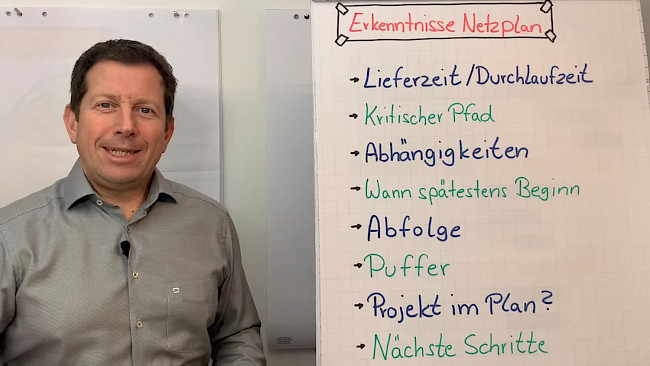 Erkenntnisse Netzplan
→ Lieferzeit/Durchlaufzeit
→ Kritischer Pfad
→ Abhängigkeiten
→ Wann spätestens Beginn
→ Abfolge
→ Puffer
→ Projekt im Plan?
→ Nächste Schritte